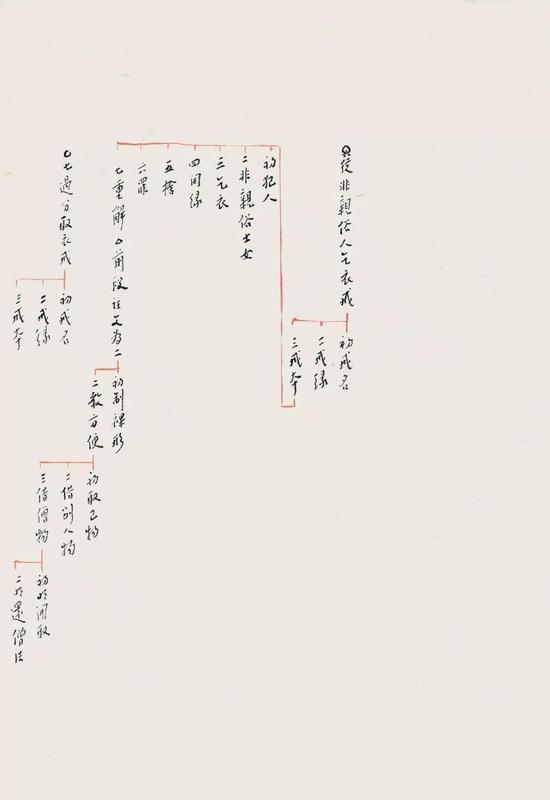 從非親俗人乞衣戒
初戒名
二戒緣
三戒本
初犯人
二非親俗士女
三乞衣
四開緣
五捨
六罪
七重解 △前段註文為二
初制裸形
二教方便
初取己物
二借別人物
三借僧物
初明開取
二明還僧法
〇七過分取衣戒
初戒名
二戒緣
三戒本